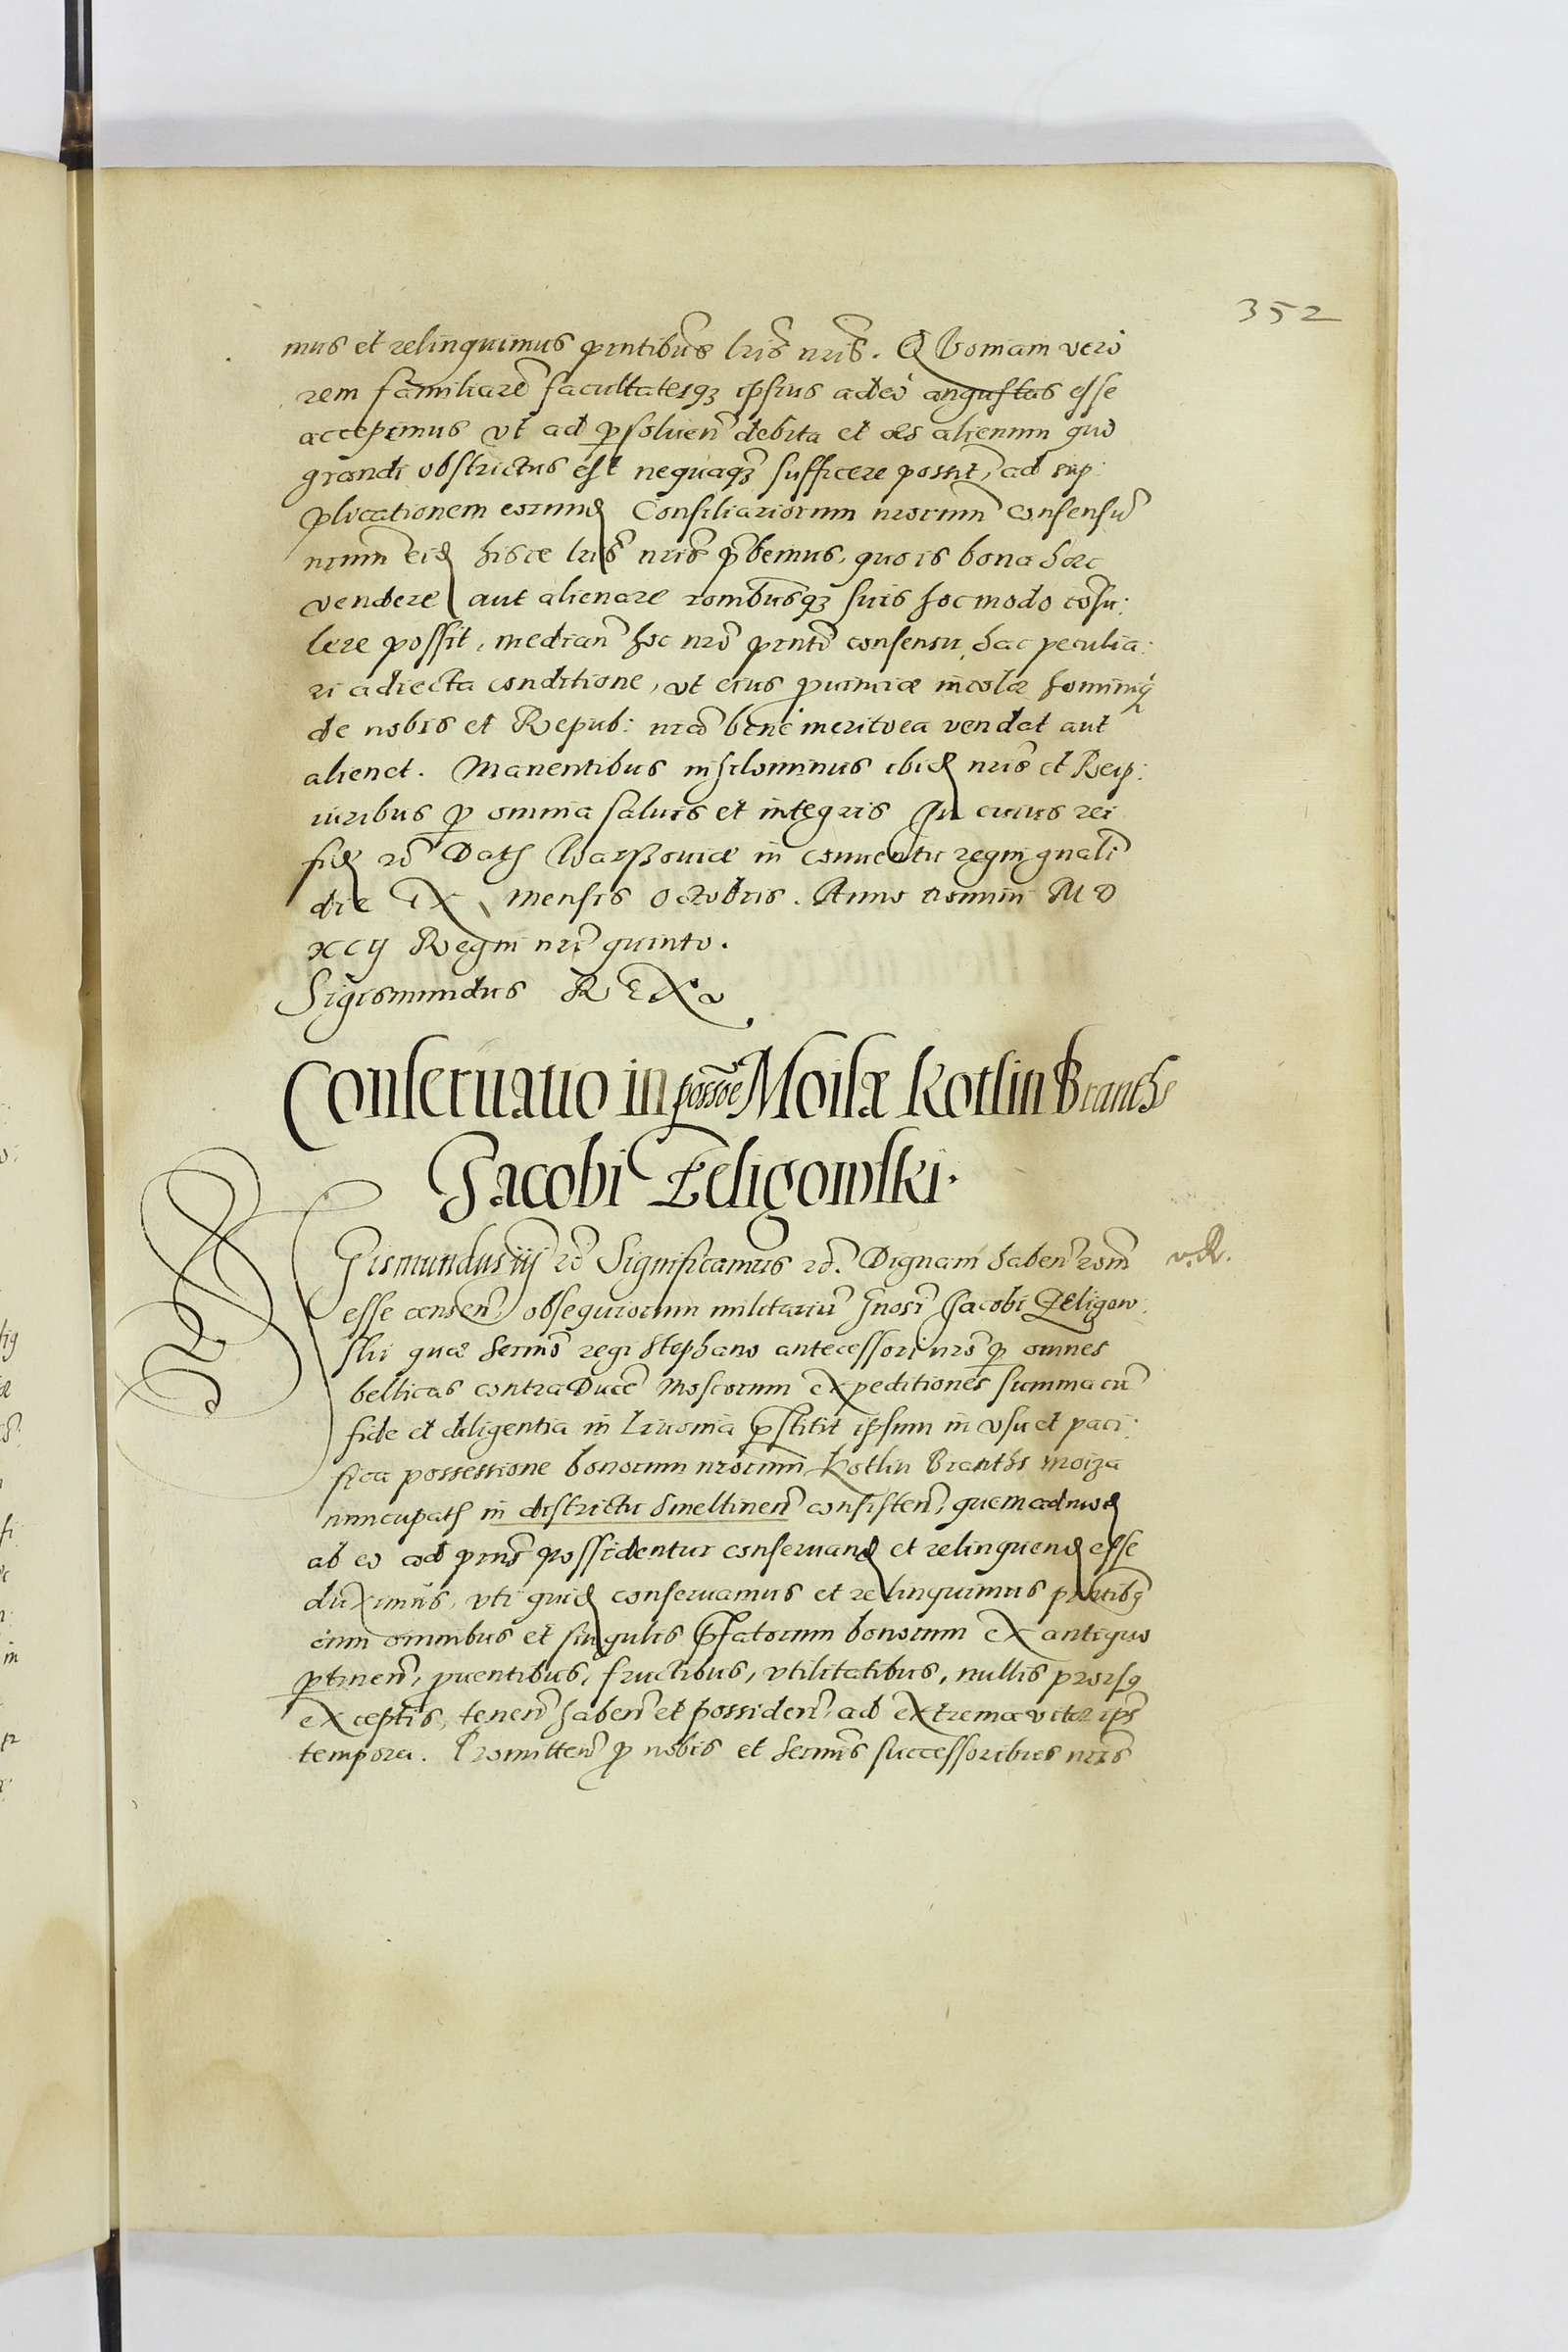 352
mus et relinquimus pñtibus lris nris. Quoniam vero
rem familiarẽ facultatesqȝ ipsius adeo angustas esse
accepimus vt ad psoluen̄ debita et æs alienum quo
grandi obstrictus est nequaqȝ sufficere possit, ad sup:
plicationem eorund Consiliariorum nrorum consensũ
nrum eid hisce lris nris p̃bemus, quo is bona hæc
vendere aut alienare rombusqȝ suis hoc modo cõsu:
lere possit, median̄ hoc nrõ pñti consensu, hac peculia:
ri adiecta conditione, vt eius prouinciæ incolæ hominiqȝ
de nobis et Repub: nrã bene merito ea vendat aut
alienet. Manentibus nihilominus ibid nris et Reip:
iuribus p omnia saluis et integris In cuius rei
fid rc̃ Dath Warssouiæ in conuentu regni gnali
die IX mensis Octobris. Anno Domini MD
XCij Regni nri quinto.
Sigismundus REX
Conseruatio in possõe Moisæ Kotlin Branths
Jacobi Zeligowski.
SIGismundus iij rc̃ Significamus rc̃. Dignam haben̄ rom̃
v.R.
esse censen̄ obsequiorum militariũ Gnosi Jacobi Zeligow
skii quæ Sermõ regi Stephano antecessori nrõ p omnes
bellicas contra Ducẽ Moscorum expeditiones summa cũ
fide et diligentia in Liuonia p̃stitit ipsum in vsu et paci:
fica possessione bonorum nrorum Kotlin Branths moiza
nuncupath in districtu Smeltinen̄ consisten̄, quemadmod
ab eo ad pñs possidentur conseruand et relinquend esse
duximus, vti quid conseruamus et relinquimus pñtibȝ
cum omnibus et singulis p̃fatorum bonorum ex antiquo
ptinen̄, puentibus, fructibus, vtilitatibus, nullis prorsȝ
exceptis, tenen̄ haben̄ et possiden̄ ad extrema vitæ ips̃
tempora. Promitten̄ p nobis et Sermis successoribus nris